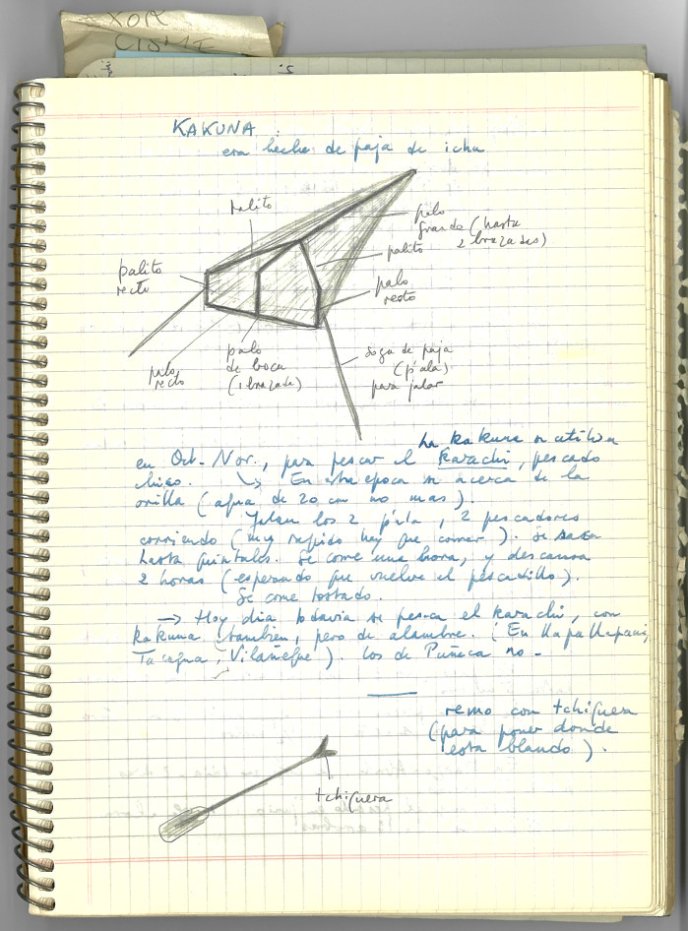 XOA
KAKUNA
era hecho de paja de ichu
palito
palo
grande (hasta
2 brazadas)
palito
palito
recto
palo
recto
palo
recto
palo
de boca
(1 brazada)
soga de paja
(p'ala)
para jalar
La kakuna se utiliza
en Oct. Nov., para pescar el karachi, pescado
chico. → En esta epoca se acerca de la
orilla (agua de 20 cm no mas).
Jalan los 2 p'ala, 2 pescadores
corriendo (muy rapido hay que correr). Se saca
hasta quintales. Se corre una hora, y descansa
2 horas (esperando que vuelve el pescadillo).
Se come tostado.
→ Hoy dia todavia se pesca el karachi, con
kakuna tambien, pero de alambre. (En Llapallapani,
Tacagua, Vilañeque). Los de Puñaca no -
remo con tchiguera
(para poner donde
esta blando).
tchiguera